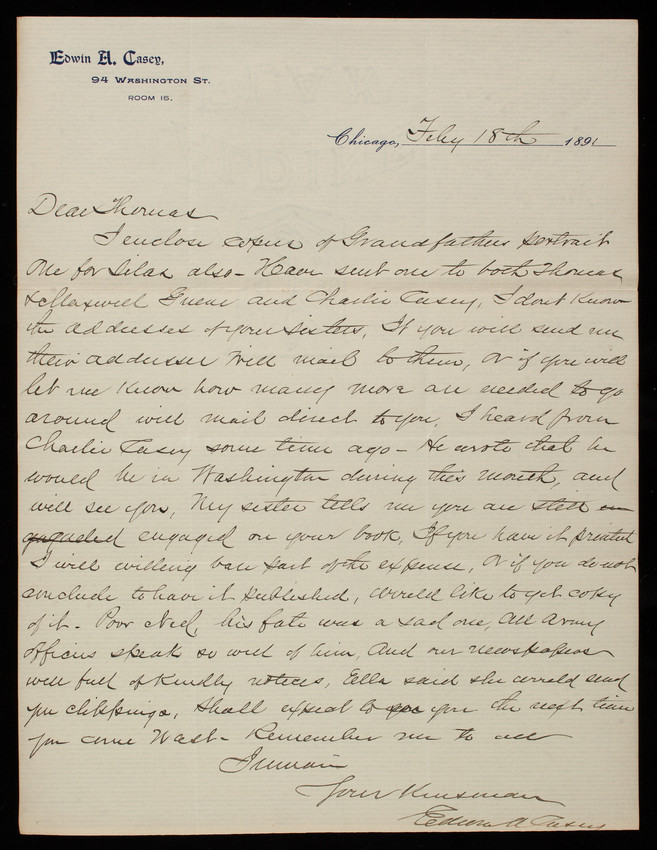 Edwin A. Casey,
94 Washington St.
Room 15.
Chicago, Feby 18th 1891
Dear Thomas
I enclose copies of Grandfathers portrait
One for Silas also - Have sent one to both Thomas
& and Charlie Casey, I dont know
the addresses of your sisters, If you will send me
their addresses will mail to them, Or if you will
let me know how many more are needed to go
around will mail direct to you, I heard from
Charlie Casey some time ago - He wrote that he
would be in Washington during this month, and
will see you, My sister tells me you are still en
engaged on your book, If you have it printed
I will willing bare part of the expense, Or if you do not
conclude to have it published, would like to get copy
of it - Poor Ned, his fate was a sad one, All Army
officers speak so well of him, And our newspapers
were full of Kindly notices, Ella said she would send
you clippings, Shall expect to see you the next time
you come West - Remember me to all
I remain
Your Kinsman
Edwin A Casey